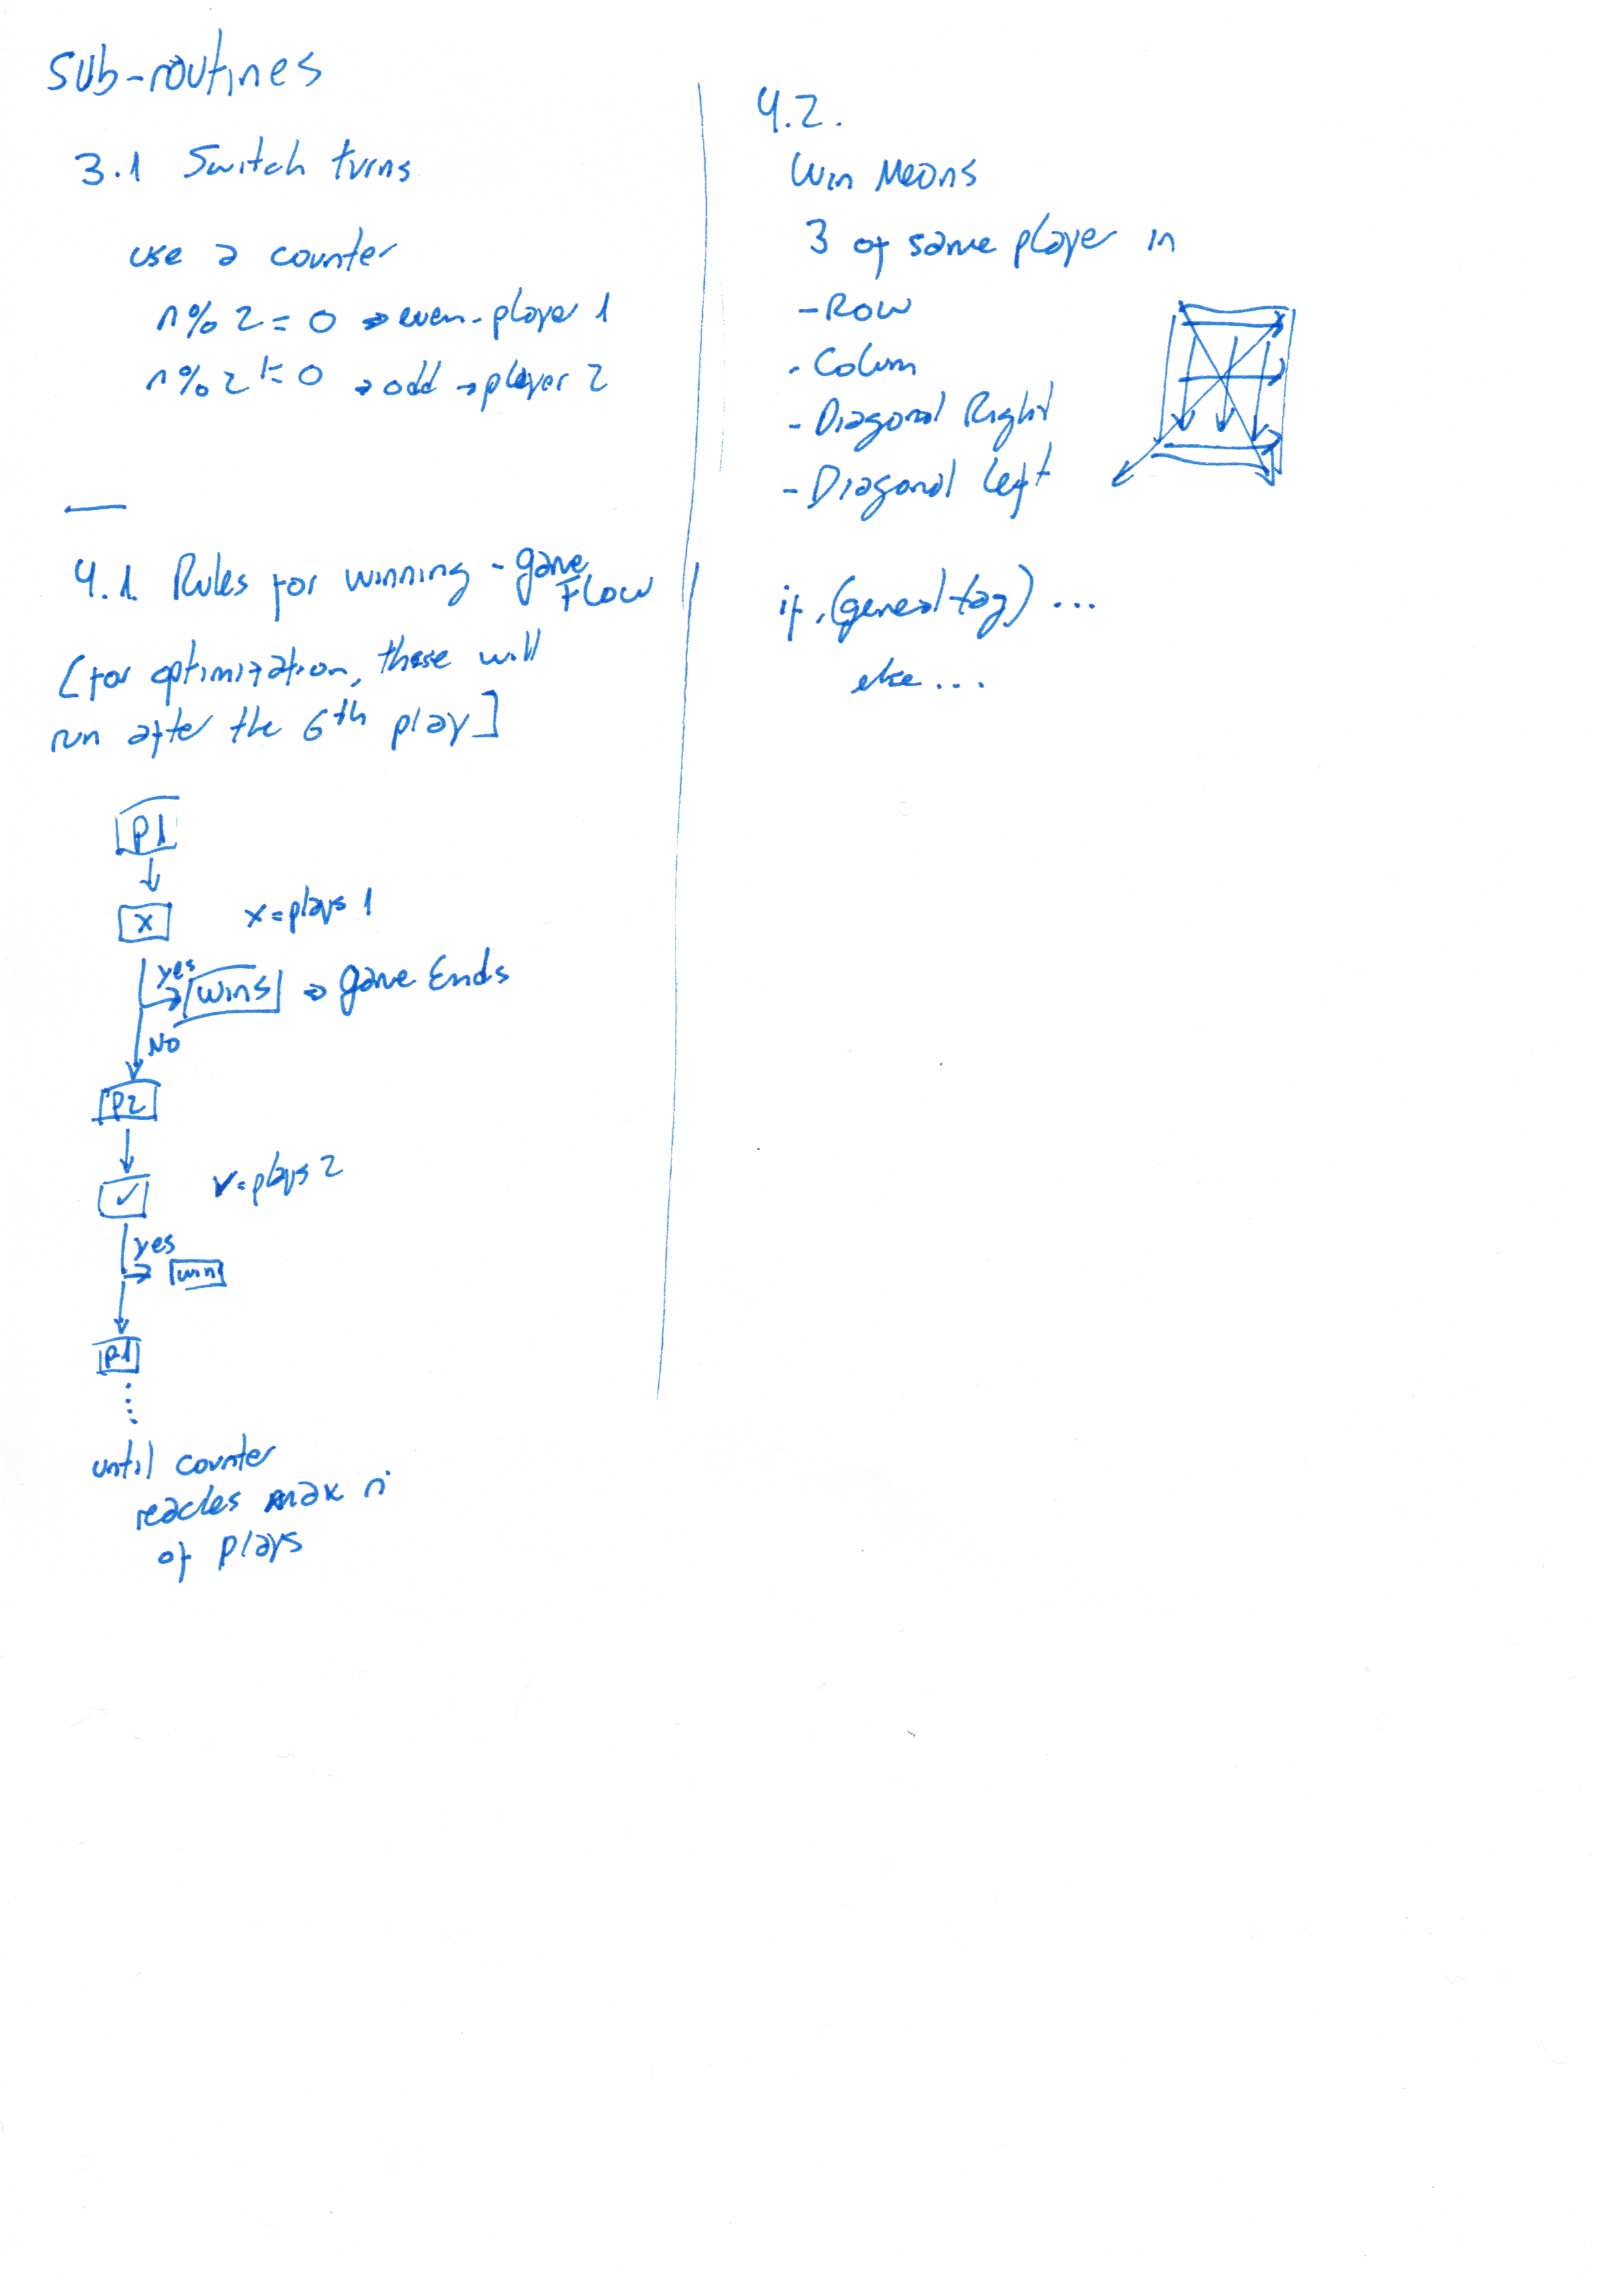 Sub-routines
3.1 Switch turns
use a counter
n%2 = 0 → even - player 1
n%2 != 0 → odd → player 2
4.1. Rules for winning - game
Flow
[for optimization, these will
run after the 6th play]
P1
X x = plays 1
yes
wins → game Ends
NO
P2
✓ v = plays 2
yes
win
P1
until counter
reaches max n
of plays
4.2.
Win Means
3 of same player in
- Row
- Colum
- Diagonal Right
- Diagonal Left
if (general tag) ...
else ...